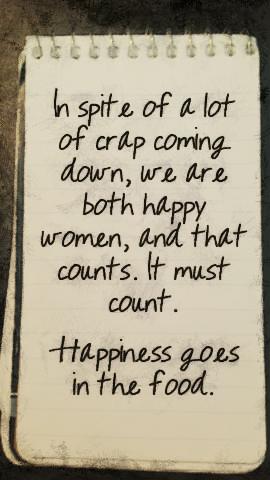 In spite of a lot
of crap coming
down, we are
both happy
women, and that
counts. It must
count.
Happiness goes
in the food.